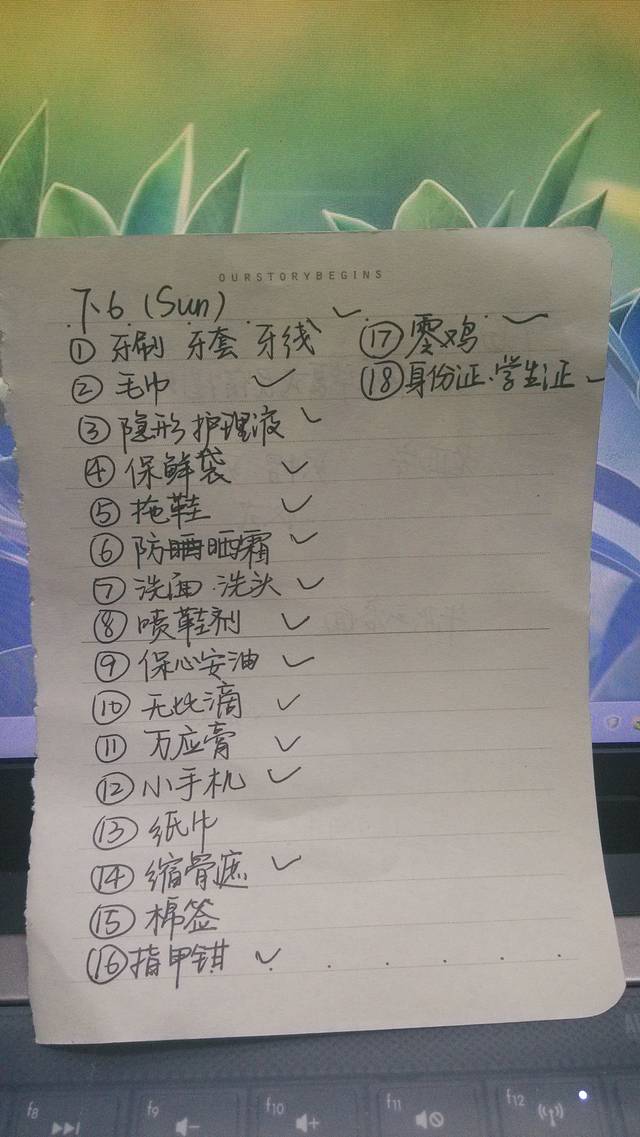 OURSTORYBEGINS
下6 (Sun)
① 牙刷 牙套 牙线 ✓
② 毛巾 ✓
③ 隐形护理液 ✓
④ 保鲜袋 ✓
⑤ 拖鞋 ✓
⑥ 防晒霜 ✓
⑦ 洗面·洗头 ✓
⑧ 喷鞋剂 ✓
⑨ 保心安油 ✓
⑩ 无比滴 ✓
⑪ 万应膏 ✓
⑫ 小手机 ✓
⑬ 纸巾
⑭ 缩骨遮 ✓
⑮ 棉签
⑯ 指甲钳 ✓
⑰ 零鸡 ✓
⑱ 身份证·学生证 ✓
f8
f9
f10
f11
f12